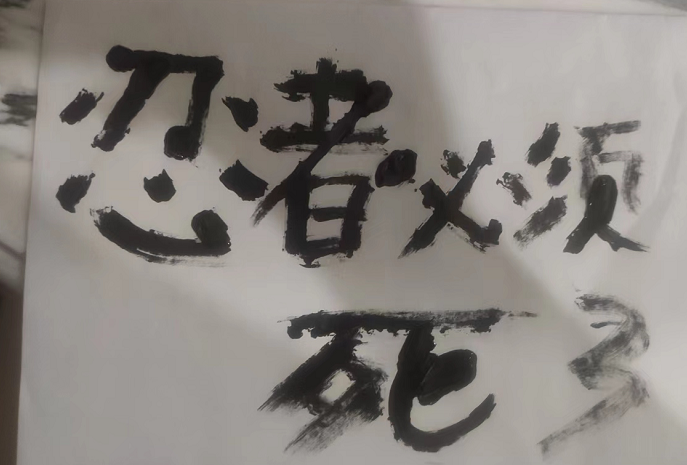 忍者必须
死3